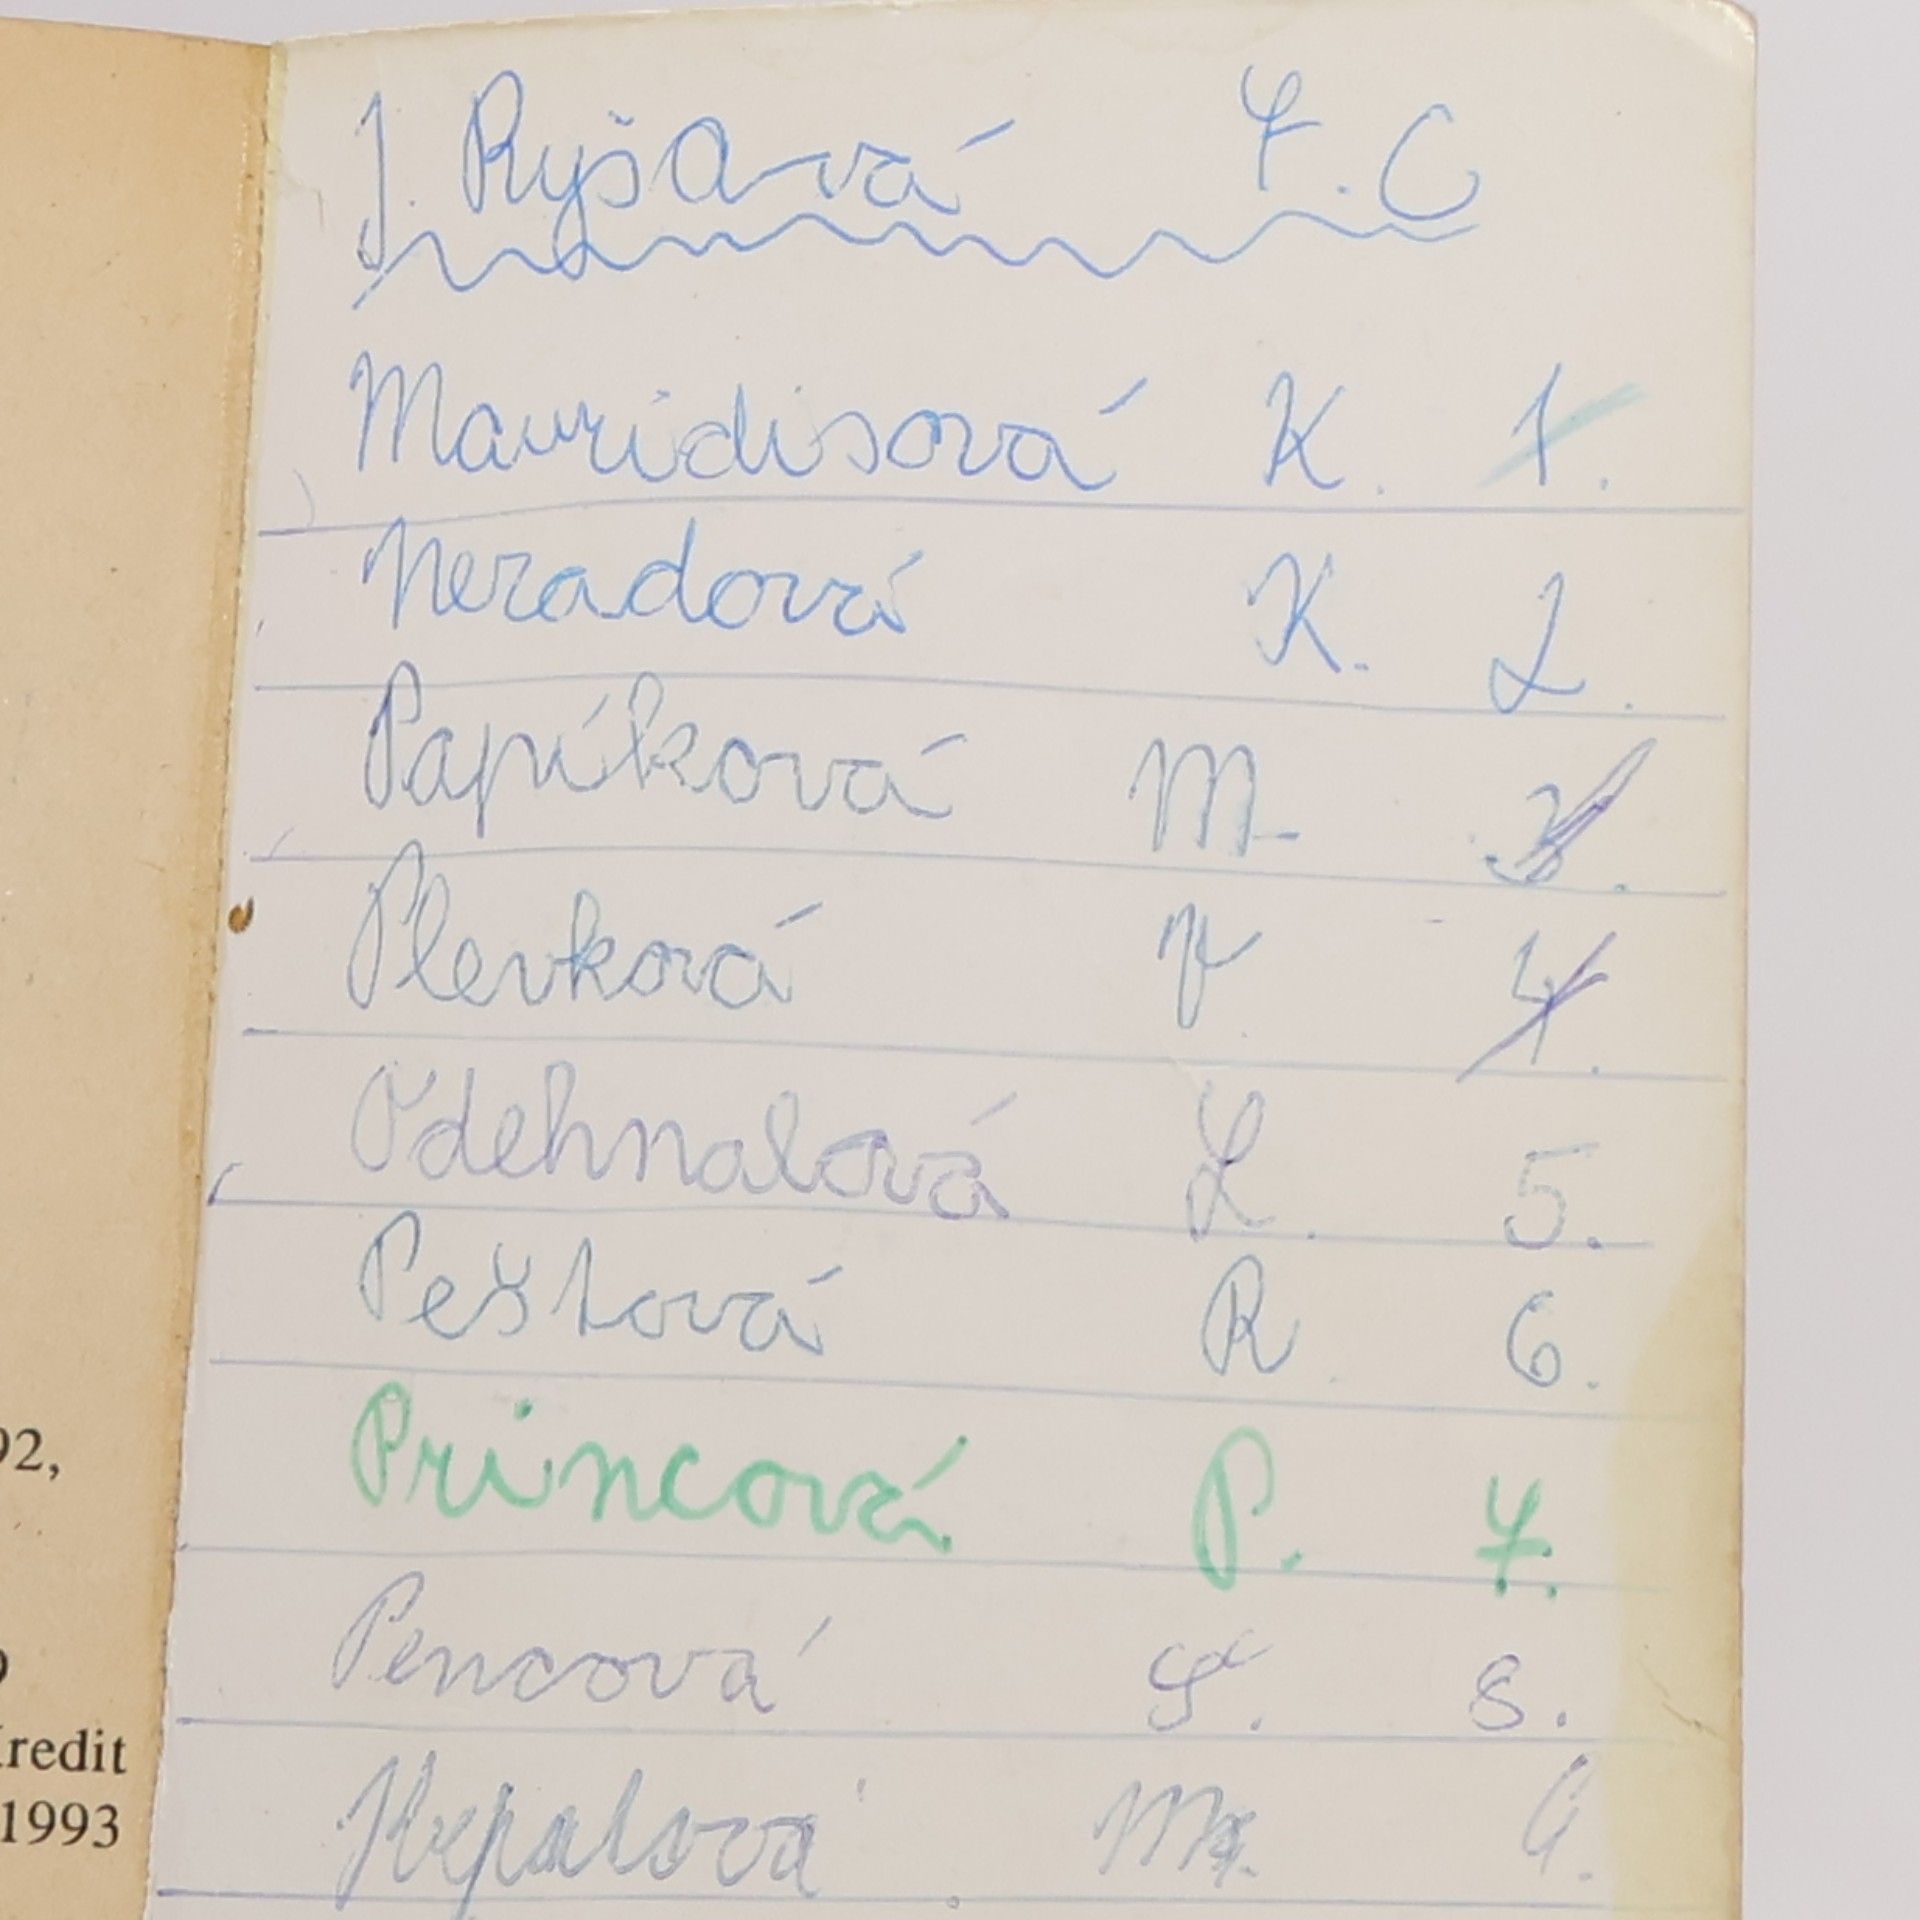 J. Ryšavá 7. C
Mauridisová K. 1.
Neradová K. 2.
Papíková M. 3.
Plevková V 4.
Odehnalová L. 5.
Peštová R. 6.
92,
Princová P. 7.
Pencová 8.
9
Kredit
1993
Nepalová M. 9.